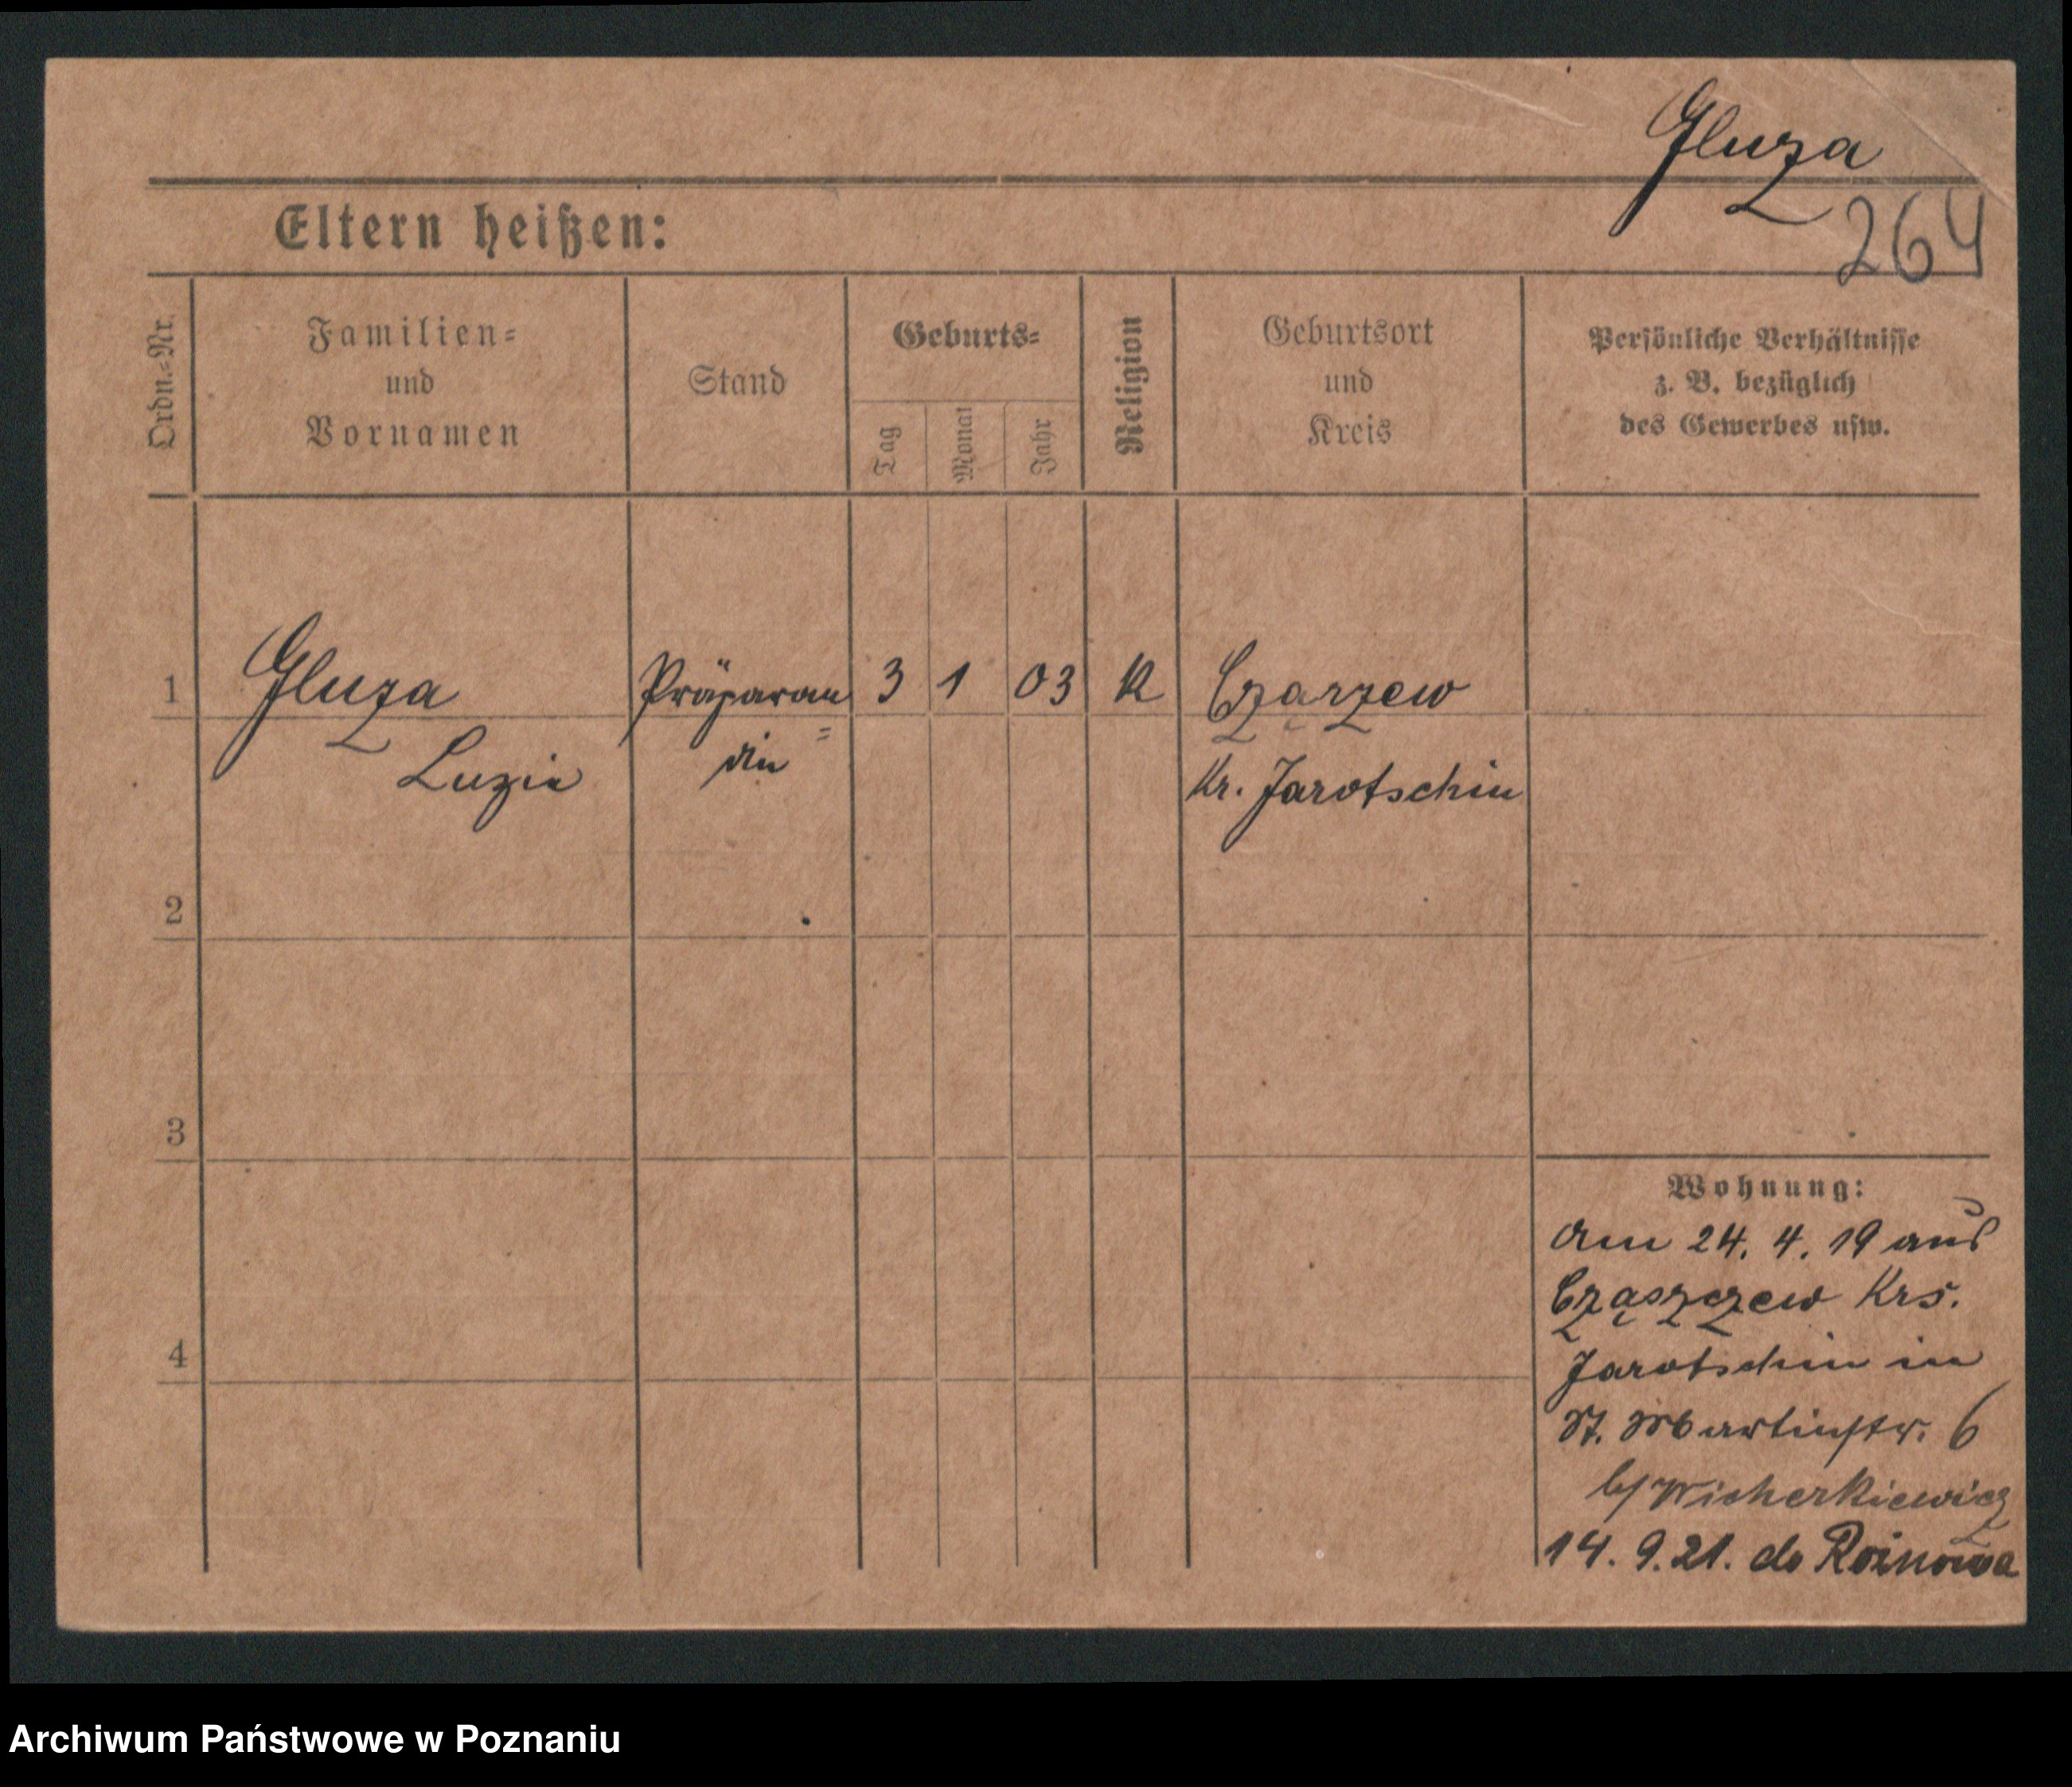 Gluza
264
Eltern heißen:
Ordn.-Nr.
Familien-
und
Vornamen
Stand
Geburts-
Tag
Monat
Jahr
Religion
Geburtsort
und
Kreis
Persönliche Verhältnisse
z. B. bezüglich
des Gewerbes usw.
1 Gluza Präparan= 3 1 03 K Czarzew
Luzia din Kr. Jarotschin
2
3
4
Wohnung:
am 24. 4. 19 aus
Cząszczew Krs.
Jarotschin in
St. Martinstr. 6
b/ Wicherkiewicz
14. 9. 21. do Roinowa
Archiwum Państwowe w Poznaniu